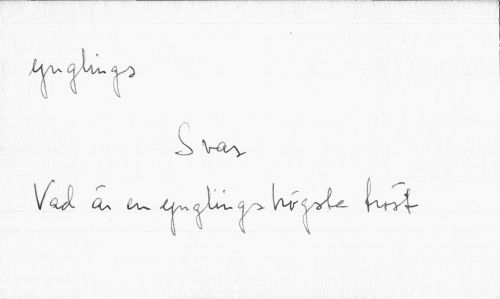 ynglings
Svar
Vad är en ynglings högste tröst